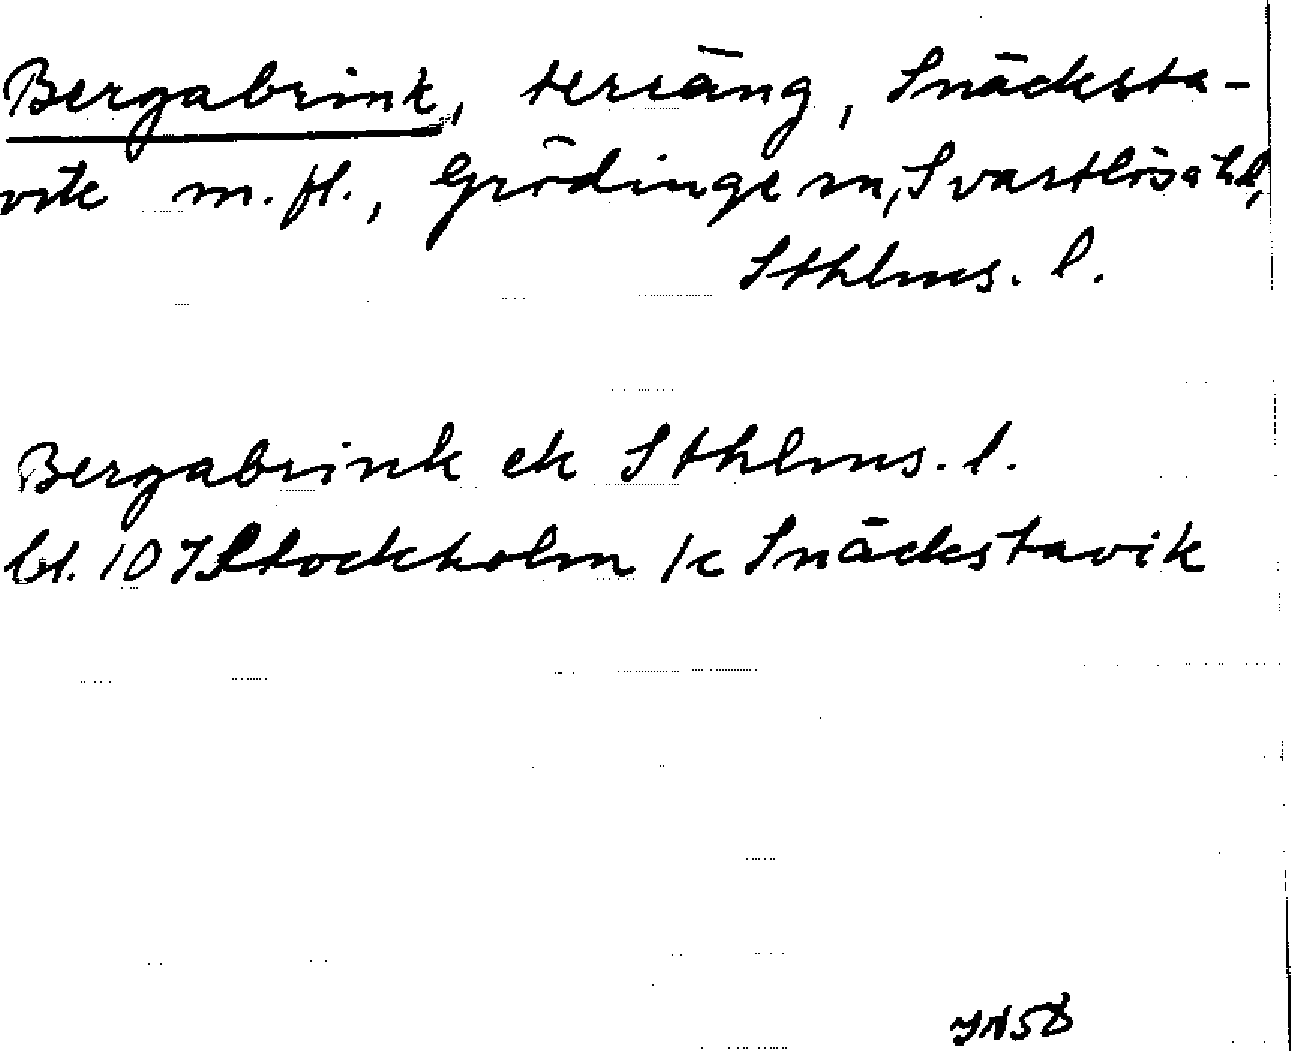 Bergabrink, terräng, Snäcksta-
vik m.fl., Grödinge sn, Svartlösa hd,
Sthlms. l.
Bergabrink ek Sthlms. l.
bl. 10 7 Stockholm /c Snäckstavik